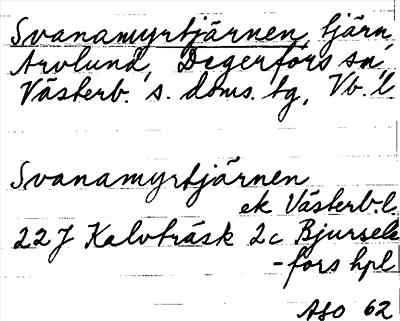 Svanamyrtjärnen, tjärn,
Arvlund, Degerfors sn,
Västerb. s. doms. tg, Vb. l
Svanamyrtjärnen
ek Västerb.l.
22J Kalvträsk 2c Bjursele
-fors hpl
ASO 62